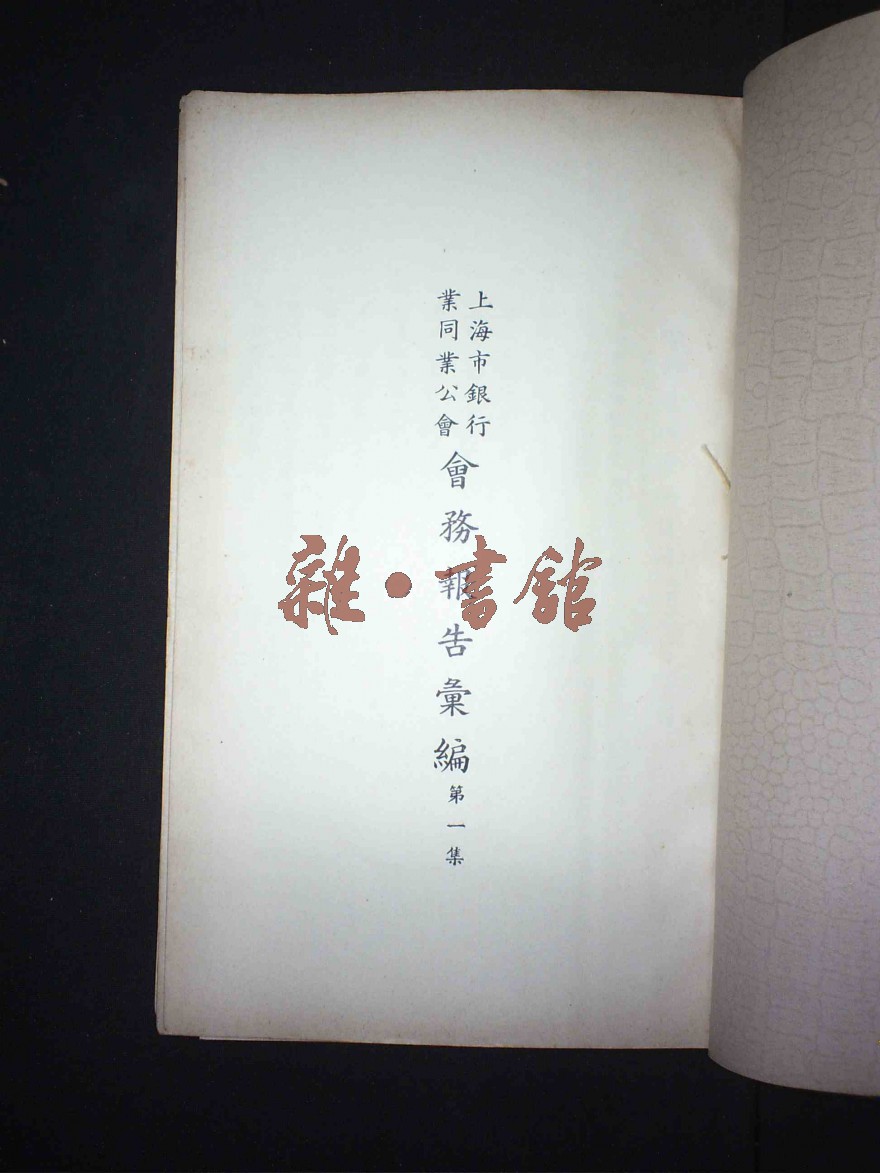 上海市銀行
業同業公會
會務報告彙編
第一集
雜·書館